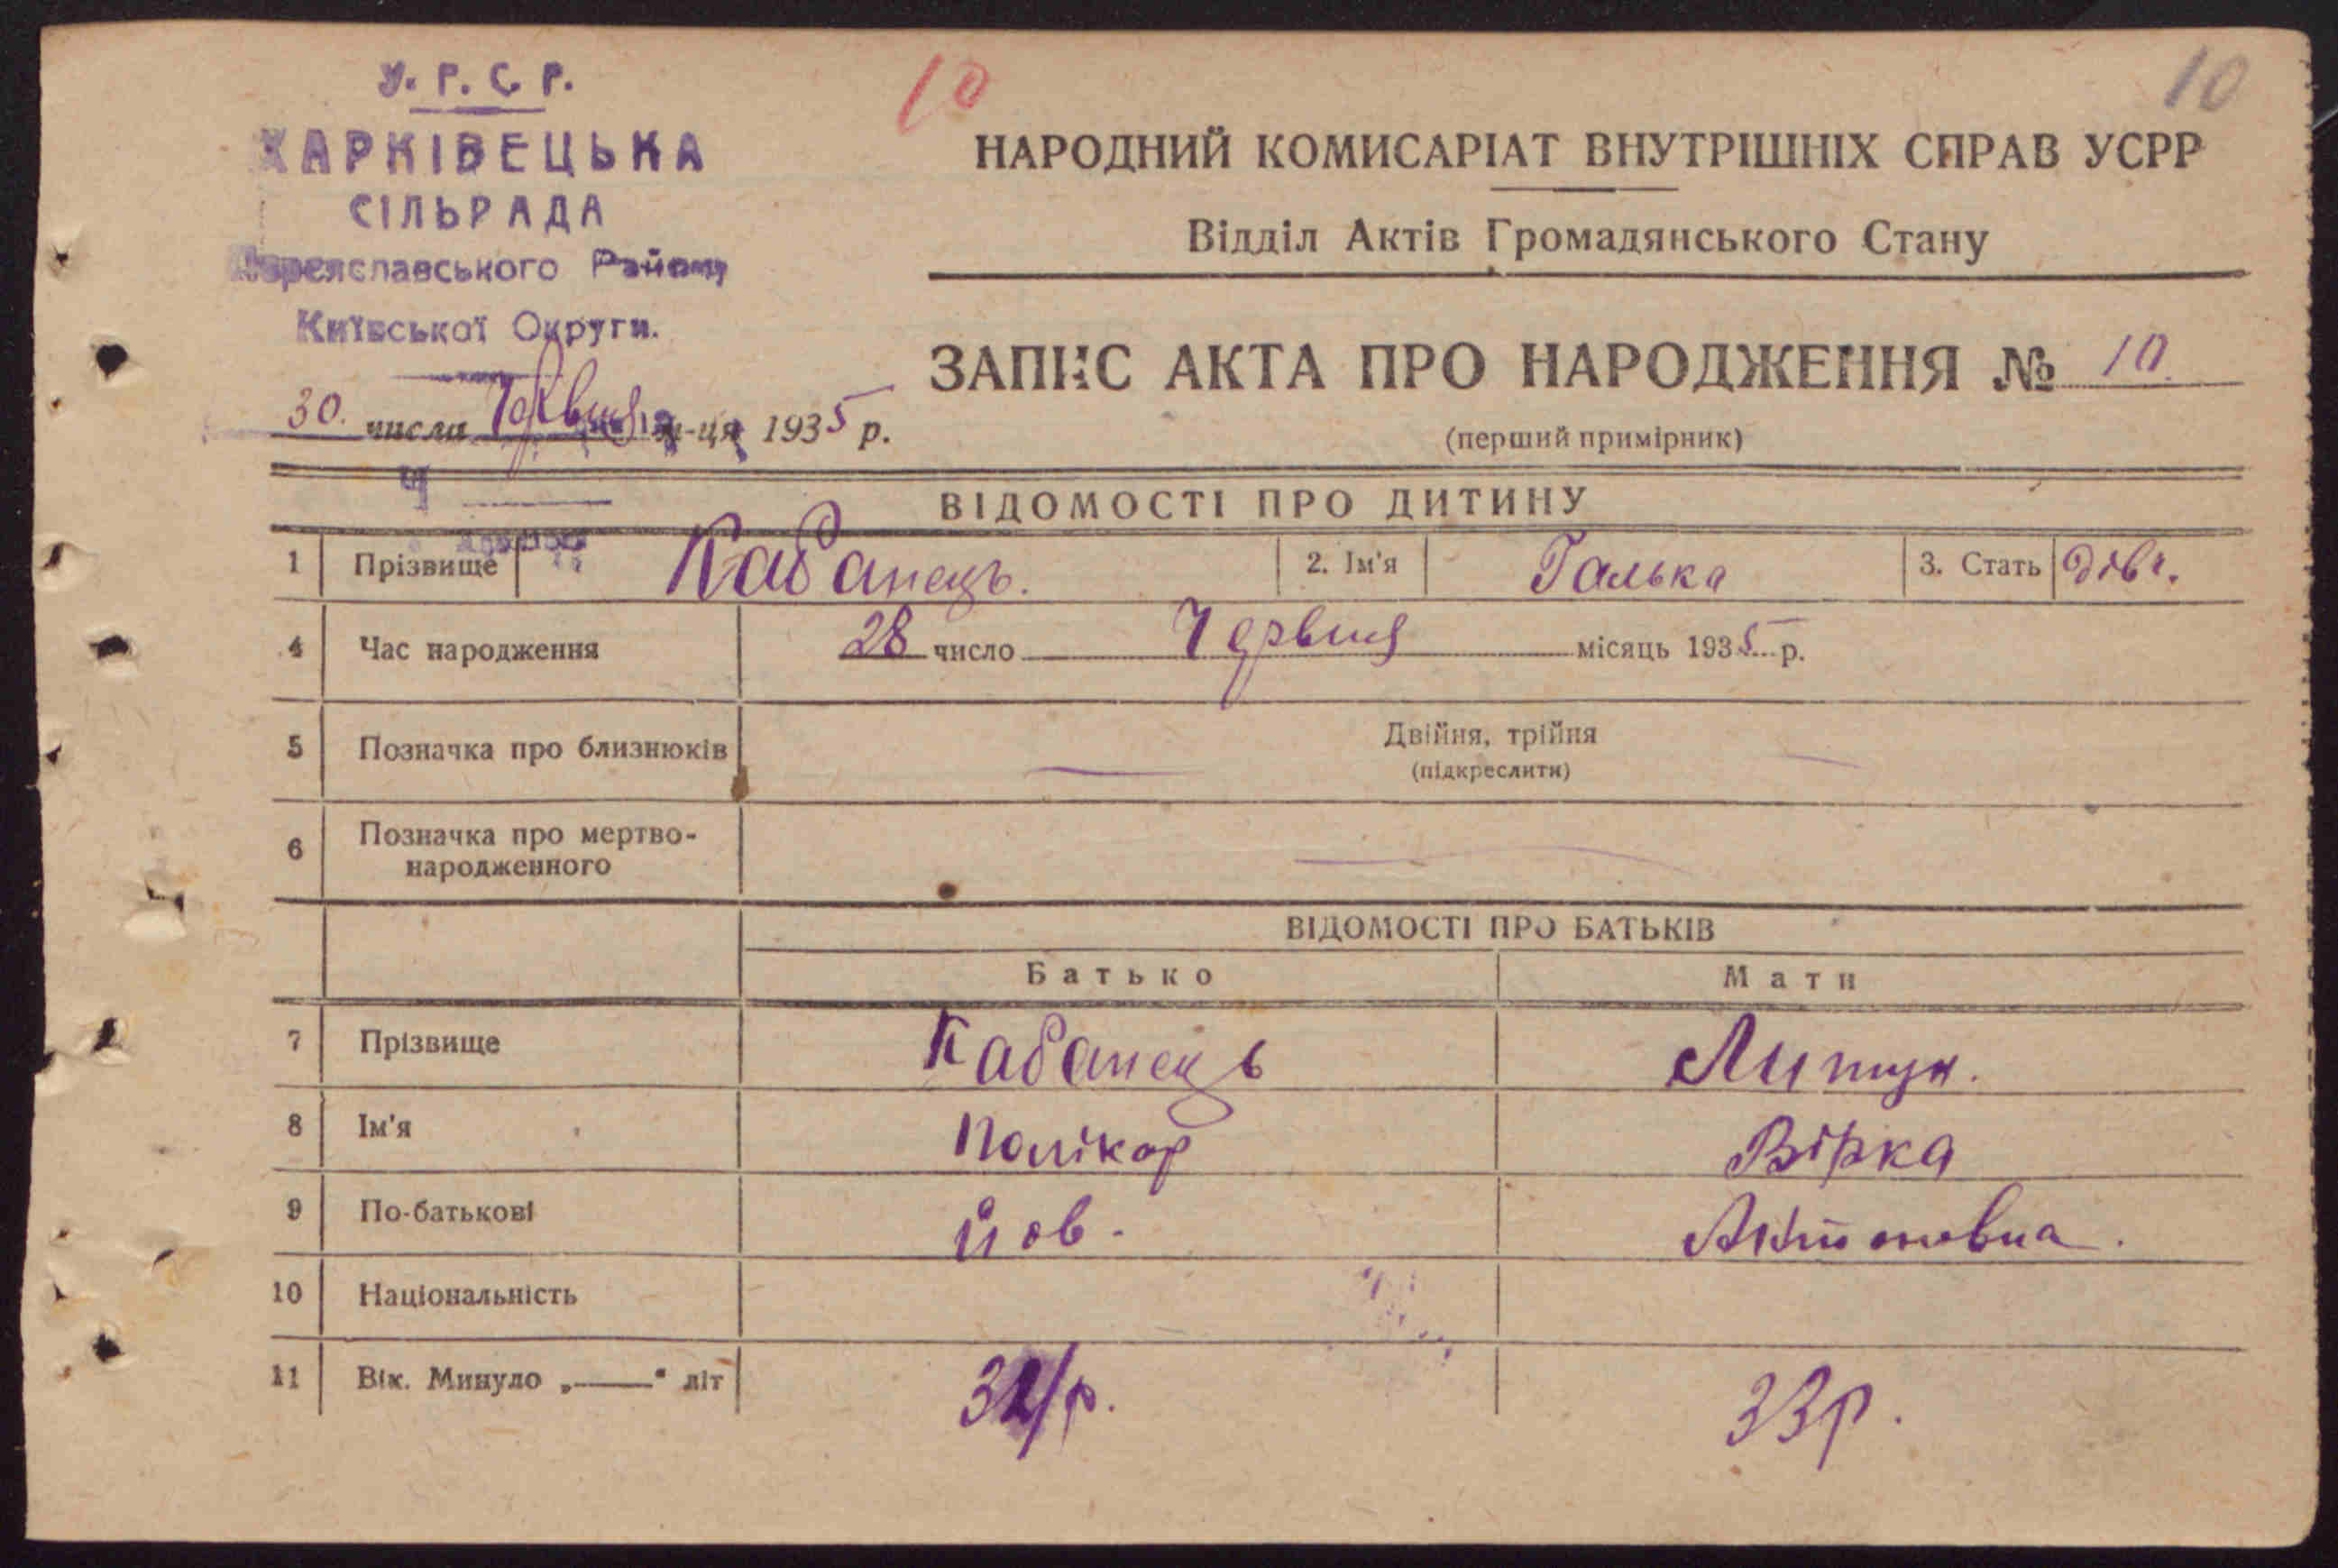 У.Р.С.Р.
10
10
ХАРКІВЕЦЬКА
СІЛЬРАДА
Переяславського Району
Київської Округи.
НАРОДНИЙ КОМИСАРІАТ ВНУТРІШНІХ СПРАВ УСРР
Відділ Актів Громадянського Стану
ЗАПИС АКТА ПРО НАРОДЖЕННЯ № 10
(перший примірник)
30 числа Червня м-ця 1935 р.
ВІДОМОСТІ ПРО ДИТИНУ
1 Прізвище Кабанець. 2. Ім'я Галька 3. Стать дівч.
4 Час народження 28 число Червня місяць 1935 р.
5 Позначка про близнюків Двійня, трійня
(підкреслити)
6 Позначка про мертво-
народженного
ВІДОМОСТІ ПРО БАТЬКІВ
Батько Мати
7 Прізвище Кабанець
8 Ім'я Полікар Вірка
9 По-батькові Йов. Антоновна.
10 Національність
11 Вік. Минуло „——" літ р. 33р.